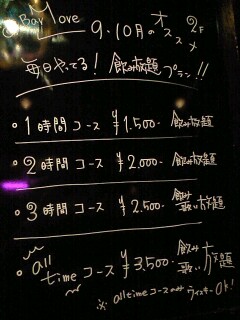 Bay Move
9・10月のオススメ 2F
毎日やってる! 飲み放題プラン!!
・1時間コース ¥1.500- 飲み放題
・2時間コース ¥2.000- 飲み放題
・3時間コース ¥2.500 飲み歌い放題
・all timeコース ¥3,500- 飲み歌い放題
※all timeコースのみウィスキーOK!